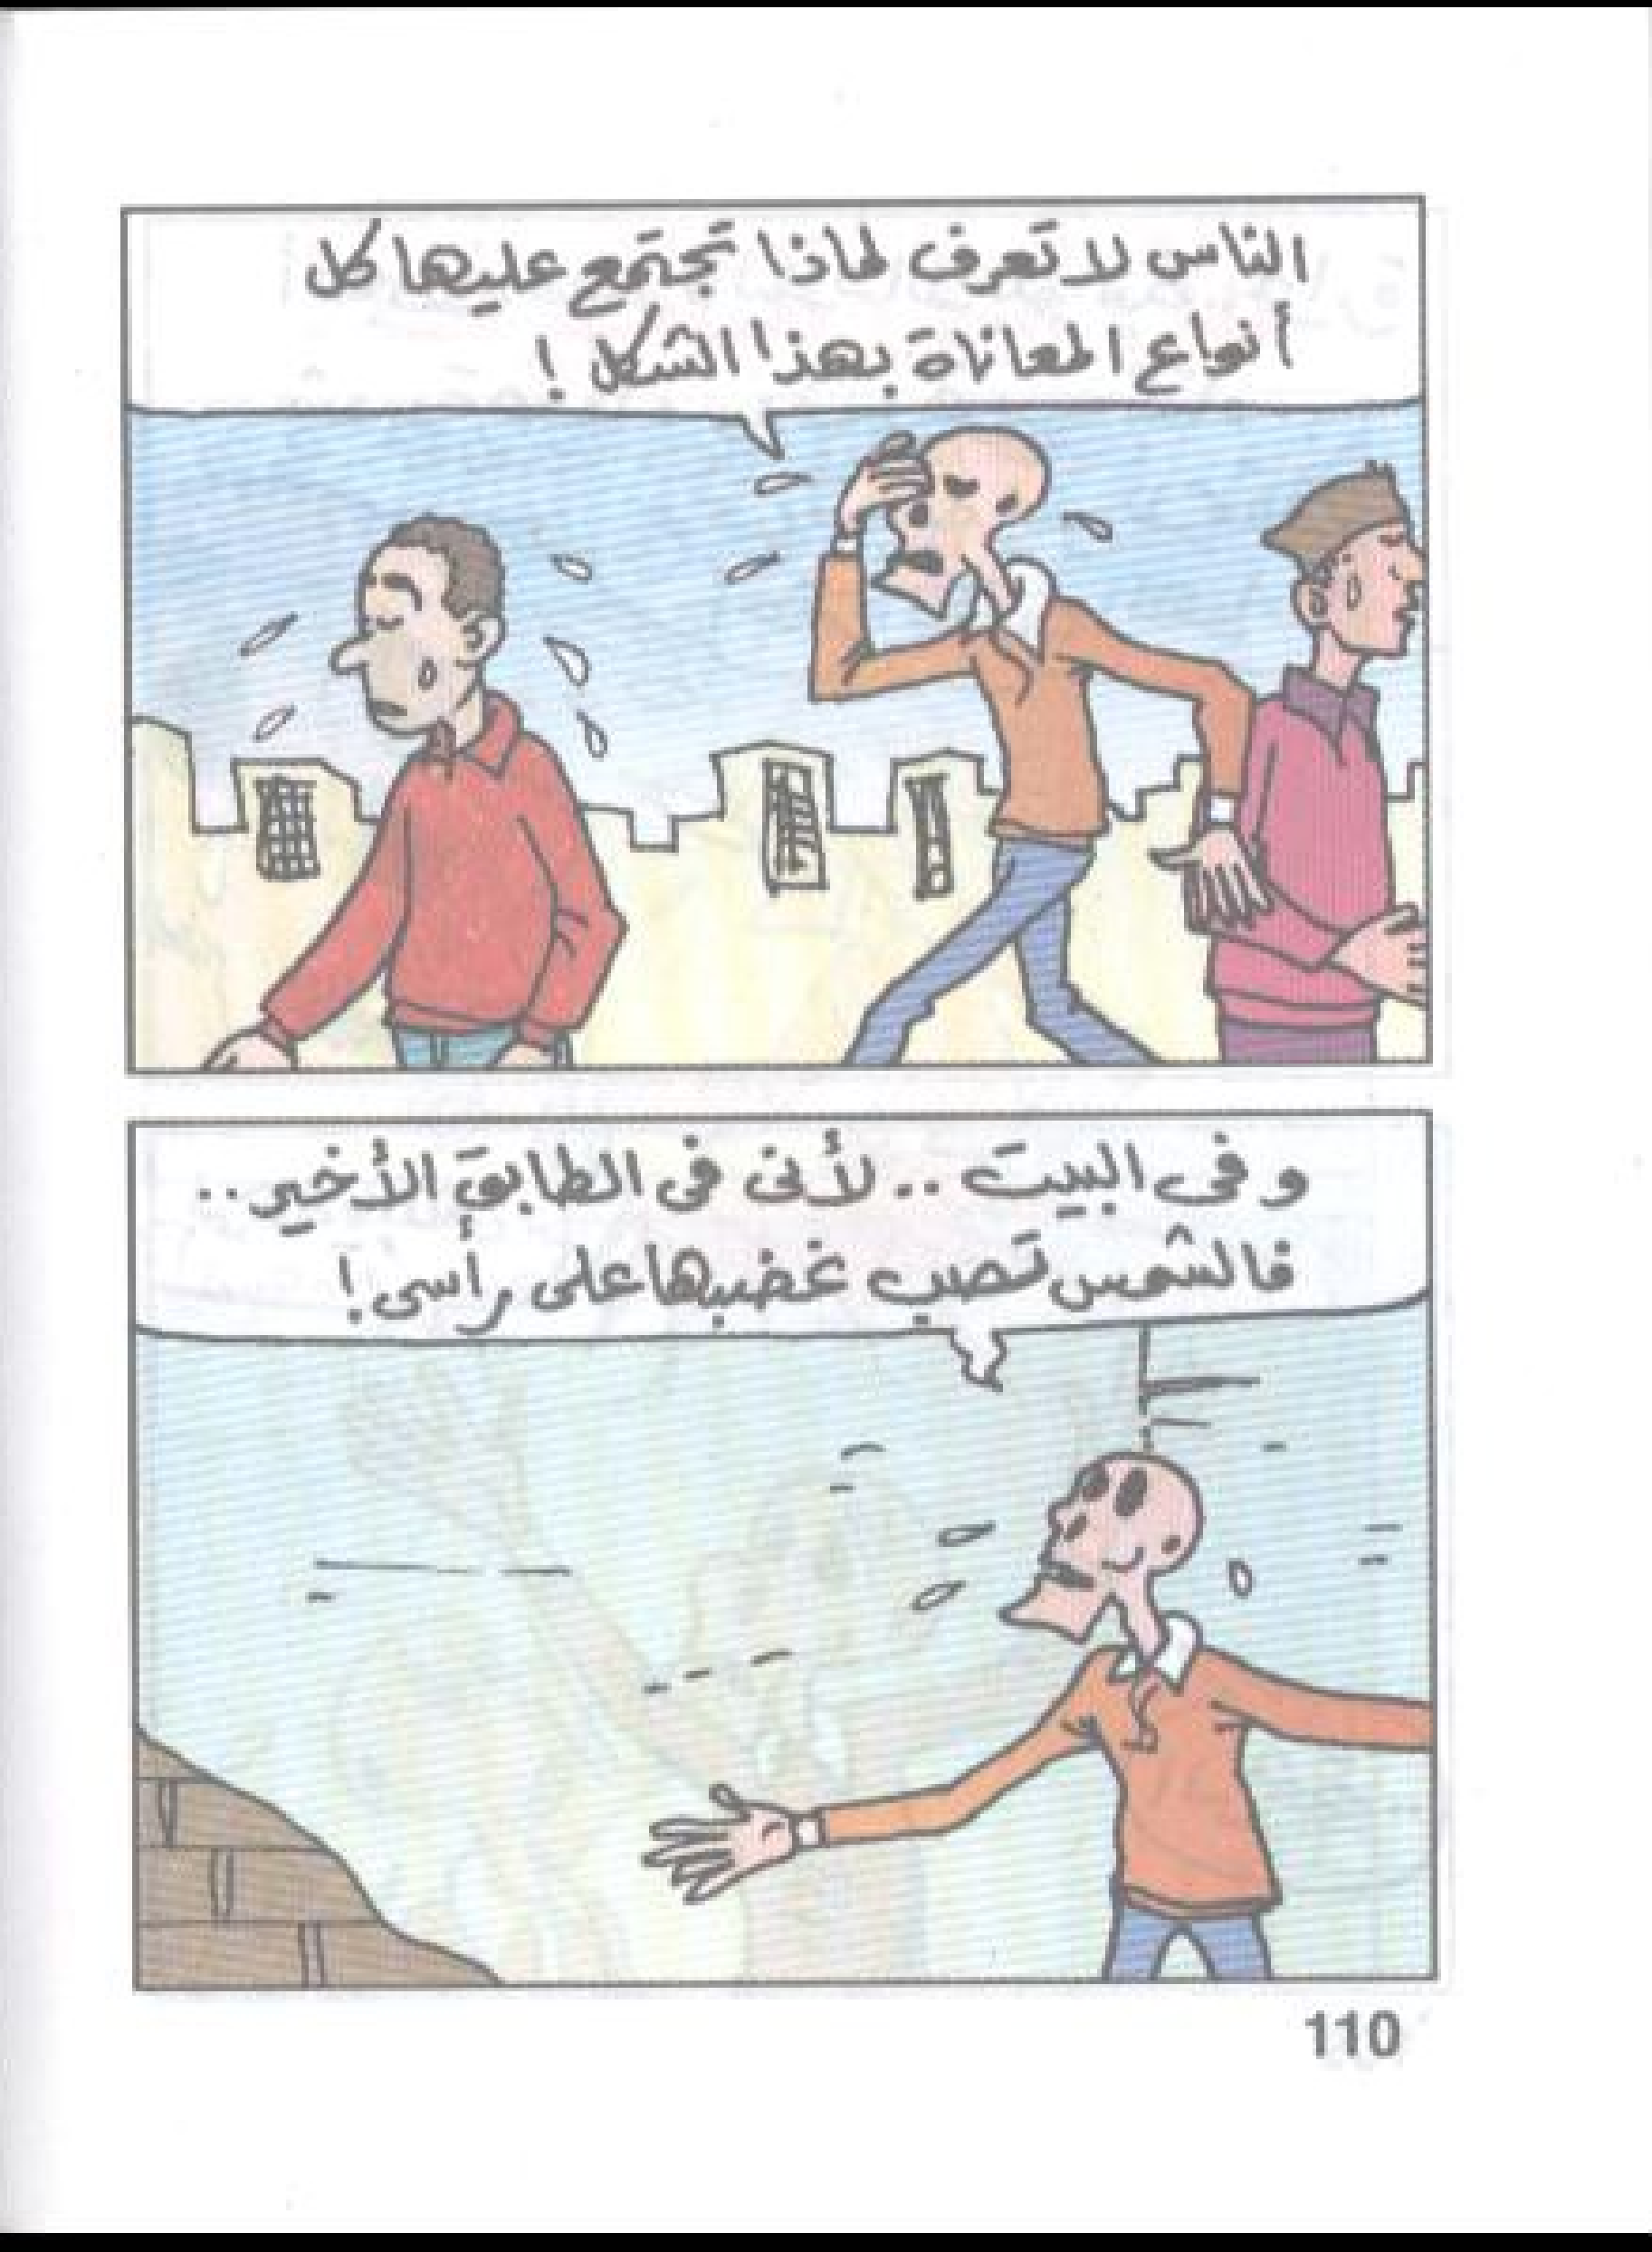 الناس لا تعرف لماذا تجتمع عليها كل
أنواع المعاناة بهذا الشكل !
وفى البيت .. لأنى فى الطابق الأخير ..
فالشمس تصب غضبها على رأسى !
110